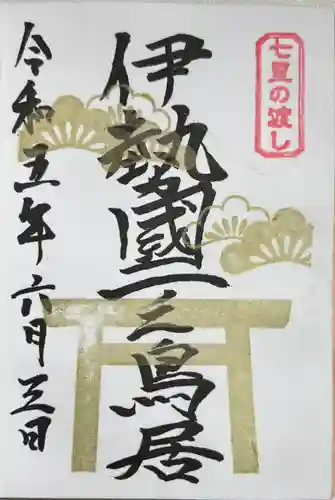 七里の渡し
伊勢國一之鳥居
令和五年六月三日